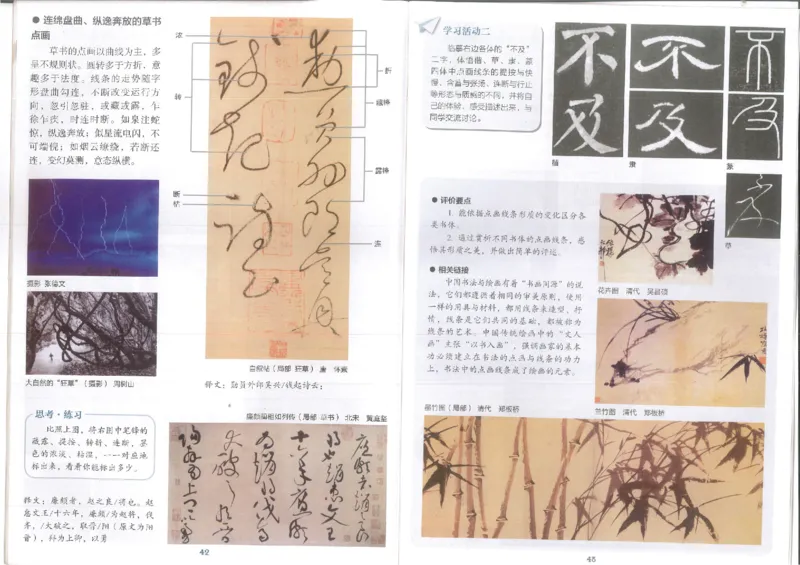 ● 连绵盘曲、纵逸奔放的草书
点画
草书的点画以曲线为主，多
呈不规则状。圆转多于方折，意
趣多于法度。线条的走势随字
形盘曲勾连，不断改变运行方
向，忽引忽驻，或藏或露，乍
徐乍疾，时连时断。如泉注蛇
惊，纵逸奔放；似星流电闪，不
可端倪；如烟云缭绕，若断还
连，变幻莫测，意态纵横。
浓
转
断
枯
折
藏锋
露锋
连
摄影 张德文
大自然的“狂草”（摄影） 冯树山
自叙帖（局部 狂草） 唐 怀素
释文：勒员外郎吴兴/钱起诗云：
思考·练习
比照上图，将右图中笔锋的
藏露、提按、转折、连断，墨
色的浓淡、枯湿，……对应地
标出来，看看你能标出多少。
廉颇蔺相如列传（局部 草书） 北宋 黄庭坚
释文：廉颇者，赵之良/将也。赵
惠文王/十六年，廉颇/为赵将，伐
齐，/大破之，取晋/阳（原文为阳
晋），拜为上卿，以勇
42
学习活动二
临摹右边各体的“不及”
二字，体悟楷、草、隶、篆
四体中点画线条的提按与快
慢、含蓄与张扬、连断与行止
等形态与质感的不同，并将自
己的体验、感受描述出来，与
同学交流讨论。
不 不 不
及 及 及
楷
隶
篆
不及
草
● 评价要点
1. 能依据点画线条形质的变化区分各
类书体。
2. 通过赏析不同书体的点画线条，感
悟其形质之美，并做出简单的评述。
● 相关链接
中国书法与绘画有着“书画同源”的说
法，它们都遵循着相同的审美原则，使用
一样的用具与材料，都用线条来造型、抒
情，线条是它们共同的基础，都被称为
线条的艺术。中国传统绘画中的“文人
画”主张“以书入画”，强调画家的基本
功必须建立在书法的点画与线条的功力
上，书法中的点画线条成了绘画的元素。
花卉图 清代 吴昌硕
兰竹图 清代 郑板桥
墨竹图（局部） 清代 郑板桥
43